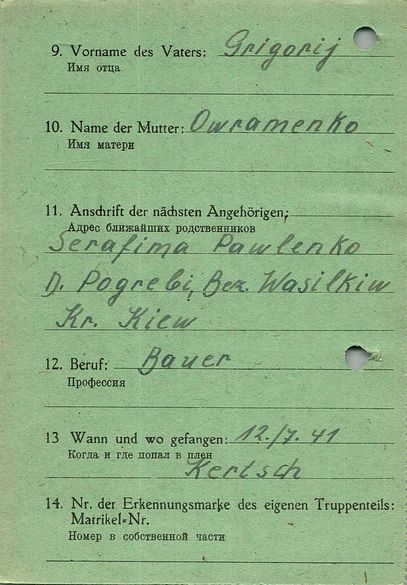 9. Vorname des Vaters: Grigorij
Имя отца
10. Name der Mutter: Owramenko
Имя матери
11. Anschrift der nächsten Angehörigen:
Адрес ближайших родственников
Serafima Pawlenko
D. Pogrebi, Bez. Wasilkiw
Kr. Kiew
12. Beruf: Bauer
Профессия
13 Wann und wo gefangen: 12./7. 41
Когда и где попал в плен
Kertsch
14. Nr. der Erkennungsmarke des eigenen Truppenteils:
Matrikel-Nr.
Номер в собственной части